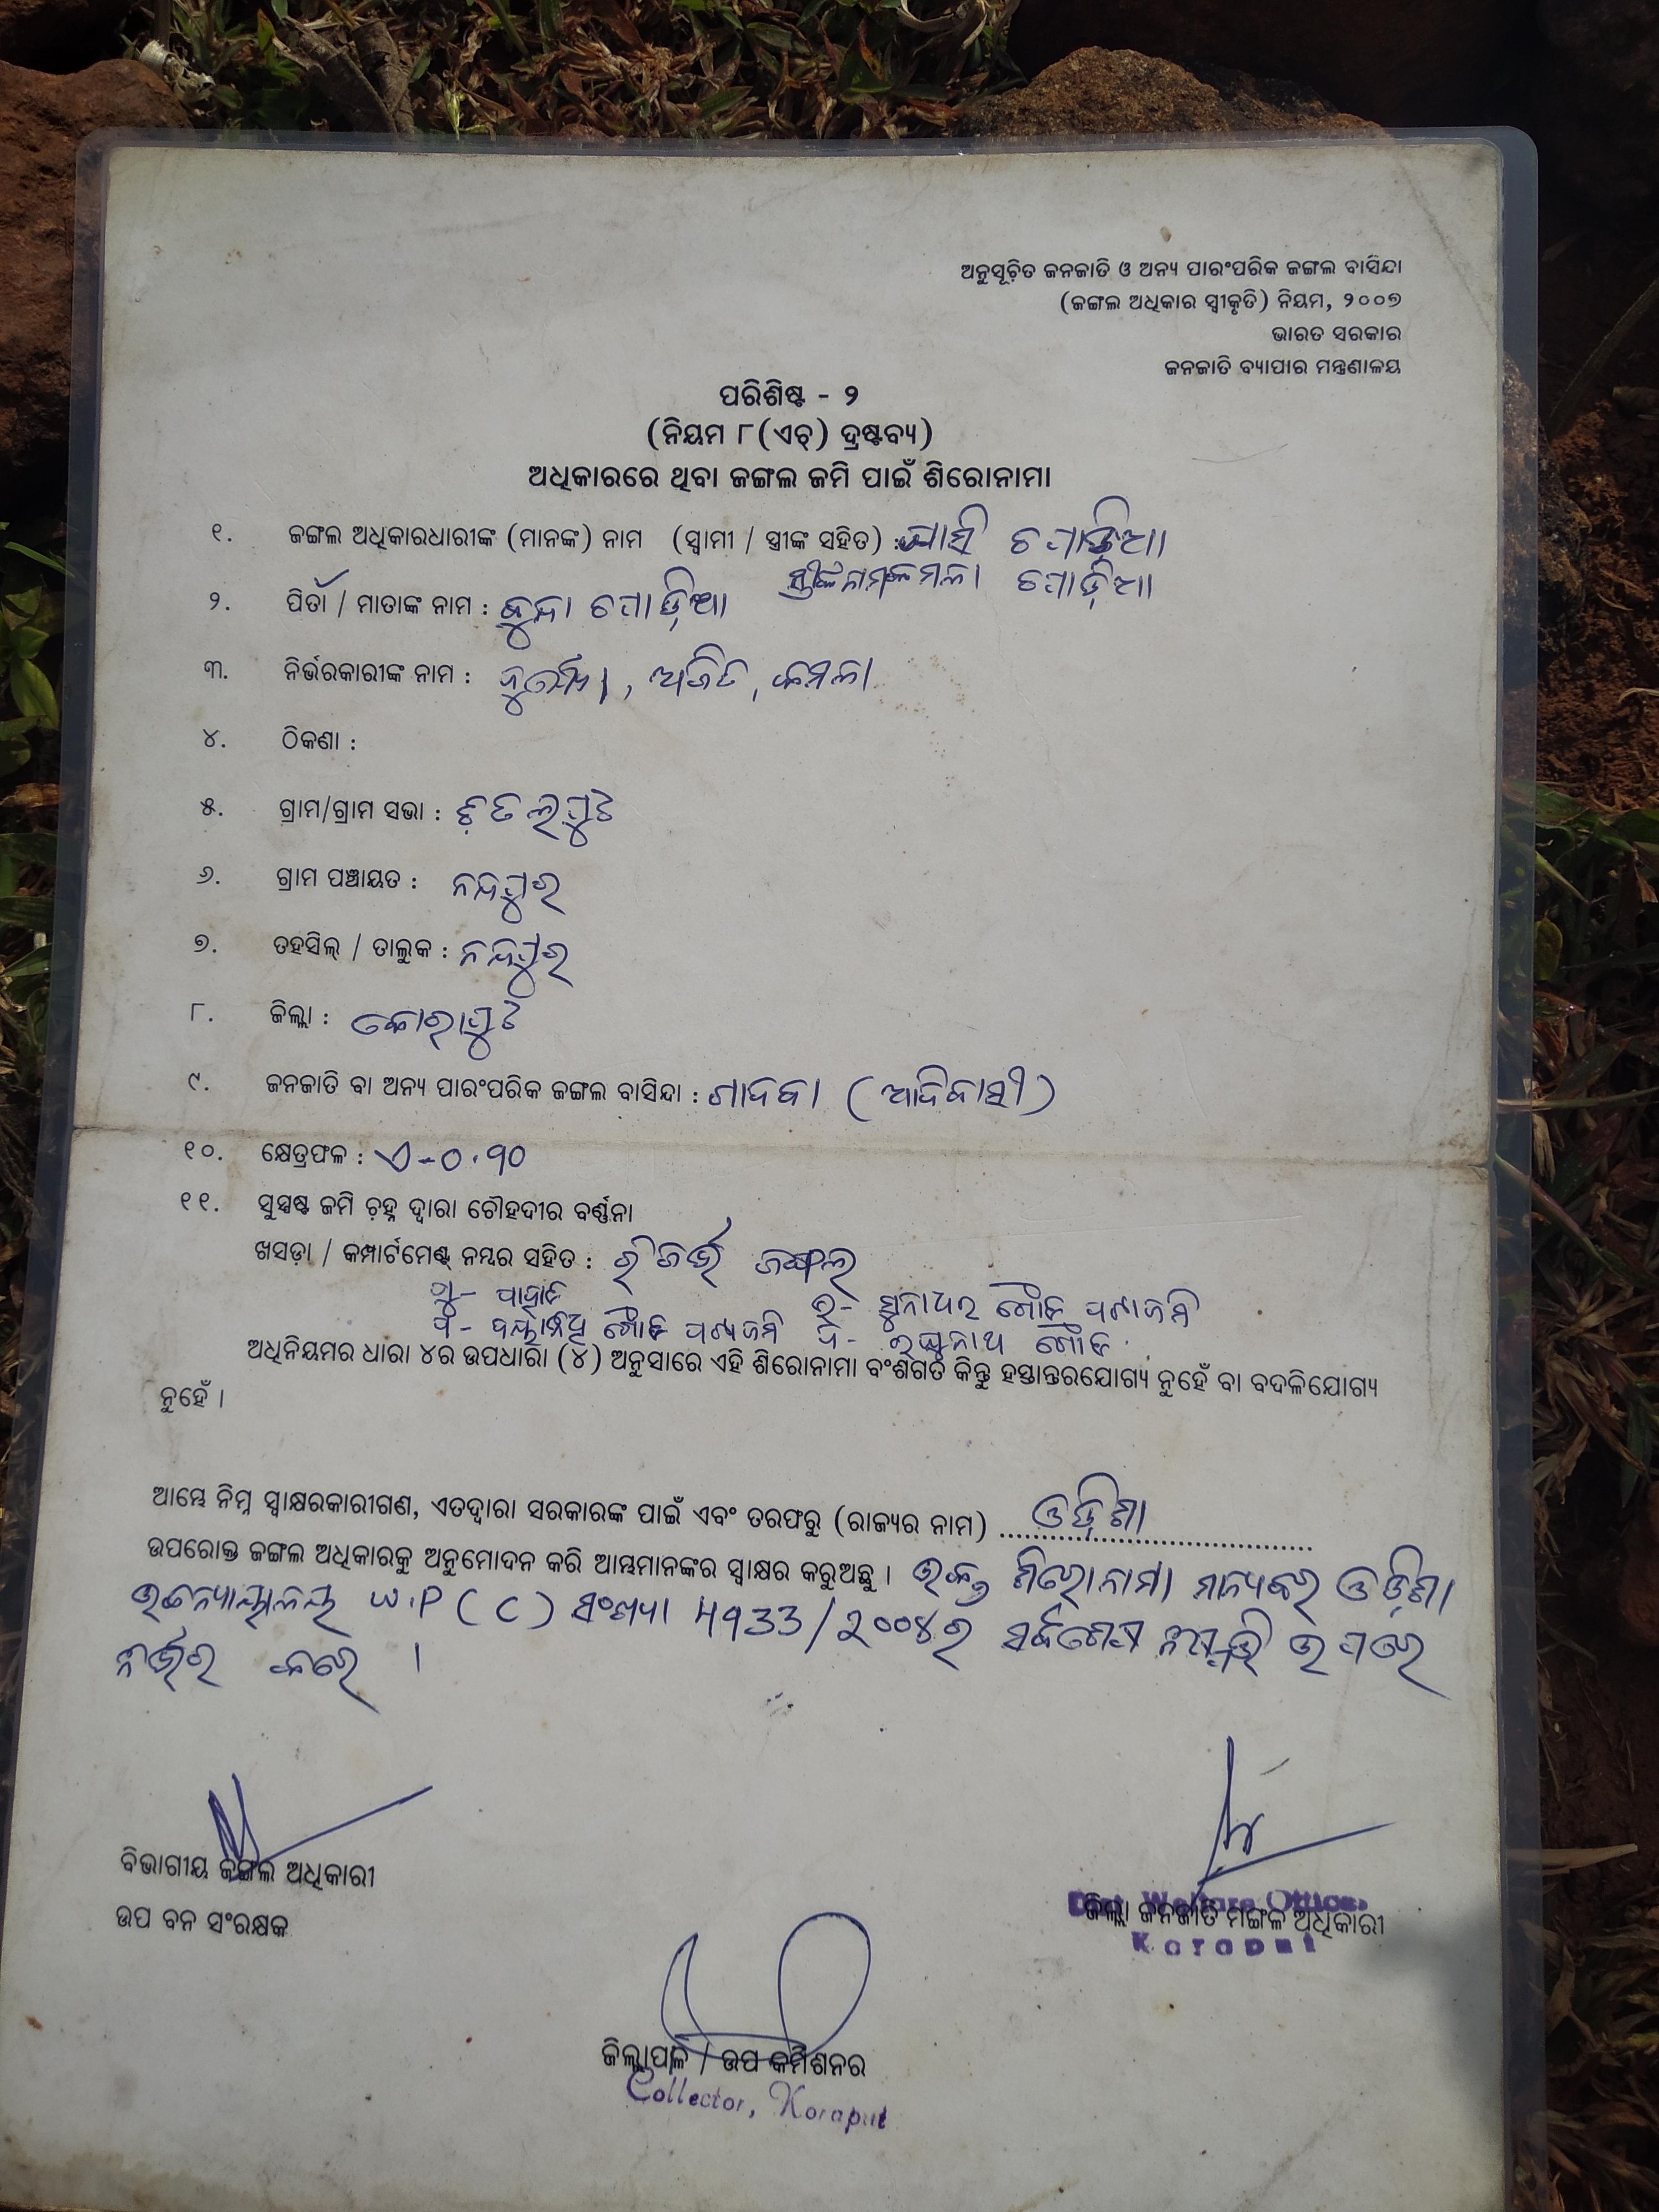 ଅନୁସୂଚିତ ଜନଜାତି ଓ ଅନ୍ୟ ପାରଂପରିକ ଜଙ୍ଗଲ ବାସିନ୍ଦା
(ଜଙ୍ଗଲ ଅଧିକାର ସ୍ୱୀକୃତି) ନିୟମ, ୨୦୦୭
ଭାରତ ସରକାର
ଜନଜାତି ବ୍ୟାପାର ମନ୍ତ୍ରଣାଳୟ
ପରିଶିଷ୍ଟ - ୨
(ନିୟମ ୮(ଏଚ୍) ଦ୍ରଷ୍ଟବ୍ୟ)
ଅଧିକାରରେ ଥିବା ଜଙ୍ଗଲ ଜମି ପାଇଁ ଶିରୋନାମା
୧. ଜଙ୍ଗଲ ଅଧିକାରଧାରୀଙ୍କ (ମାନଙ୍କ) ନାମ (ସ୍ୱାମୀ / ସ୍ତ୍ରୀଙ୍କ ସହିତ) :
ସ୍ତ୍ରୀଙ୍କ ନାମ କମଳା
୨. ପିତା / ମାତାଙ୍କ ନାମ :
୩. ନିର୍ଭରକାରୀଙ୍କ ନାମ : , ଅଜିତ, କମଳା
୪. ଠିକଣା :
୫. ଗ୍ରାମ/ଗ୍ରାମ ସଭା :
୬. ଗ୍ରାମ ପଞ୍ଚାୟତ : ନନ୍ଦପୁର
୭. ତହସିଲ୍ / ତାଲୁକ : ନନ୍ଦପୁର
୮. ଜିଲ୍ଲା : କୋରାପୁଟ
୯. ଜନଜାତି ବା ଅନ୍ୟ ପାରଂପରିକ ଜଙ୍ଗଲ ବାସିନ୍ଦା : ଗାଦବା (ଆଦିବାସୀ)
୧୦. କ୍ଷେତ୍ରଫଳ : ଏ-୦.୩୦
୧୧. ସୁସ୍ପଷ୍ଟ ଜମି ଚିହ୍ନ ଦ୍ୱାରା ଚୌହଦୀର ବର୍ଣ୍ଣନା
ଖସଡ଼ା / କମ୍ପାର୍ଟମେଣ୍ଟ୍ ନମ୍ବର ସହିତ : ରିଜର୍ଭ ଜଙ୍ଗଲ
ପୂ- ପାହାଡ ଉ- ସୁନାଧର ଗୌଡ
ପ- ଗୌଡ ଦ- ରଘୁନାଥ ଗୌଡ
ଅଧିନିୟମର ଧାରା ୪ର ଉପଧାରା (୪) ଅନୁସାରେ ଏହି ଶିରୋନାମା ବଂଶଗତ କିନ୍ତୁ ହସ୍ତାନ୍ତରଯୋଗ୍ୟ ନୁହେଁ ବା ବଦଳିଯୋଗ୍ୟ
ନୁହେଁ ।
ଆମ୍ଭେ ନିମ୍ନ ସ୍ୱାକ୍ଷରକାରୀଗଣ, ଏତଦ୍ୱାରା ସରକାରଙ୍କ ପାଇଁ ଏବଂ ତରଫରୁ (ରାଜ୍ୟର ନାମ) ଓଡ଼ିଶା
ଉପରୋକ୍ତ ଜଙ୍ଗଲ ଅଧିକାରକୁ ଅନୁମୋଦନ କରି ଆମ୍ଭମାନଙ୍କର ସ୍ୱାକ୍ଷର କରୁଅଛୁ । ଉକ୍ତ ଶିରୋନାମା ମାନ୍ୟବର ଓଡ଼ିଶା
ଉଚ୍ଚନ୍ୟାୟାଳୟ W.P (C) ସଂଖ୍ୟା 4933/୨୦୦୪ର ସର୍ବଶେଷ ନିଷ୍ପତ୍ତି ଉପରେ
ନିର୍ଭର କରେ ।
ବିଭାଗୀୟ ଜଙ୍ଗଲ ଅଧିକାରୀ
ଉପ ବନ ସଂରକ୍ଷକ
Dist. Welfare Officer
ଜିଲ୍ଲା ଜନଜାତି ମଙ୍ଗଳ ଅଧିକାରୀ
Koraput
ଜିଲ୍ଲାପାଳ / ଉପ କମିଶନର
Collector, Koraput